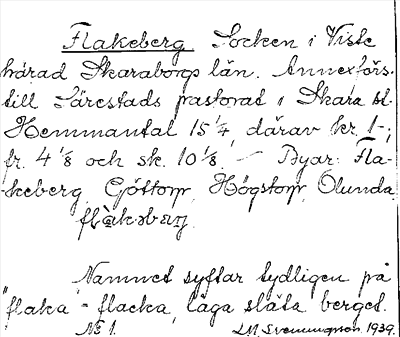 Flakeberg Socken i Viste
härad Skaraborgs län. Annexförs.
till Särestads pastorat i Skara st.
Hemmantal 15 1/4, därav kr. 1-;
fr. 4 1/8 och sk. 10 1/8. - Byar: Fla-
keberg, Göttorp, Högstorp, Ölunda.
Namnet syftar tydligen på
"flaka" - flacka, låga släta berget.
No 1. 1939.